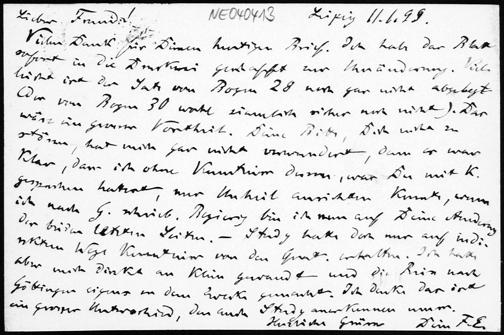 Lieber Freund! NE040413 Leipzig 11.1.99.
Vielen Dank für Deinen heutigen Brief. Ich habe das Blatt
sofort in die Druckerei geschafft zur Umänderung. Viel-
leicht ist der Satz vom Bogen 28 noch gar nicht abgelegt
(der vom Bogen 30 wohl ziemlich sicher noch nicht). Das
wäre ein grosser Vortheil. Deine Bitte, Dich nicht zu
stören, hat mich gar nicht verwundert, denn es war
klar, dass ich ohne Kenntniss dessen, was Du mit K.
gesprochen hattest, nur Unheil anrichten konnte, wenn
ich nach G. schrieb. Begierig bin ich nun auf Deine Änderung
der beiden letzten Seiten. – Study hatte doch nur auf indi-
rektem Wege Kenntniss von den erhalten. Ich hatte
aber mich direkt an Klein gewandt und die Reise nach
Göttingen eigens zu dem Zwecke gemacht. Ich denke das ist
ein grosser Unterschied, den auch Study anerkennen muss.
Herzliche Grüsse Dein F.E.